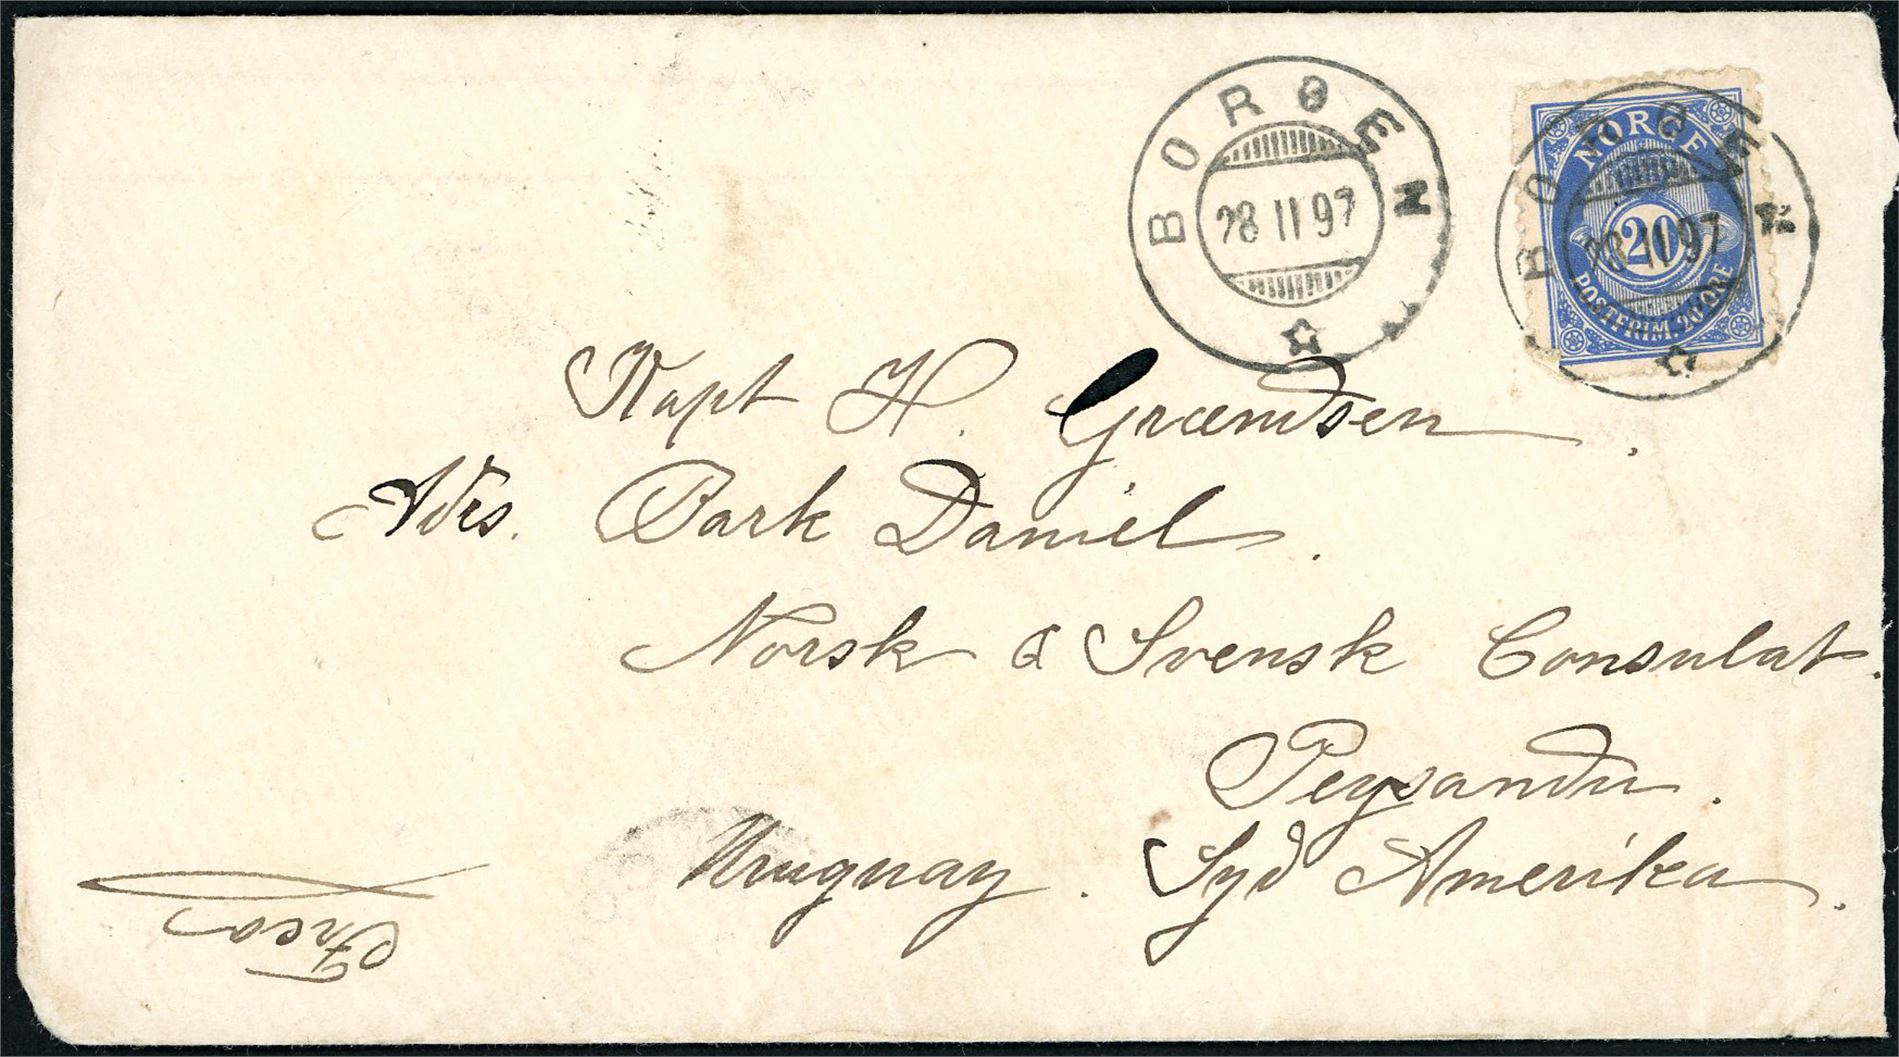 BORØEN
28 II 97
NORGE
20
POSTFRIM. 20 ØRE
BORØEN
28 II 97
Kapt H. Grændsen.
Adrs. Bark Daniel.
Norsk & Svensk Consulat.
Peysandu.
Uruguay. Syd Amerika.
Frco